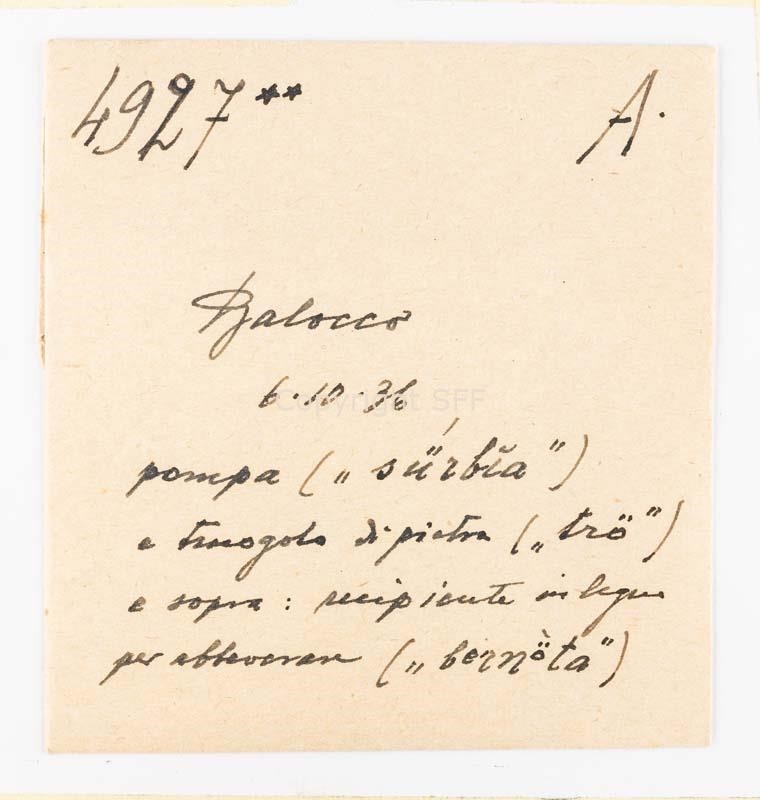 4927** A.
Balocco
6.10.36
Copyright SFF
pompa („sürbĭa")
e truogolo di pietra („trö")
e sopra: recipiente in legno
per abbeverare („bernö̀ta")